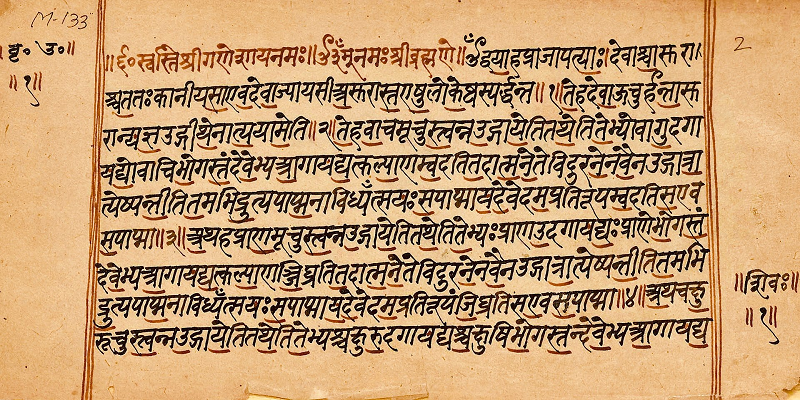 M-133
बृ॰ उ॰॥
॥१॥
2
॥६०स्वस्तिश्रीगणेशायनमः॥ॐनमःश्रीब्रह्मणे॥ॐद्वयाहप्राजापत्याः।देवाश्चासुरा॥
श्चततःकानीयसाएवदेवाज्यायसीअसुरास्तएषुलोकेष्वस्पर्द्धन्त॥१॥तेहदेवाऊचुर्हन्तासु
रान्यज्ञउद्गीथेनात्ययामेति॥२॥तेहवाचमूचुस्त्वन्नउद्गायेतितथेतितेभ्योवागुदगा
यद्योवाचिभोगस्तंदेवेभ्यआगायद्यत्कल्याणम्वदतितदात्मनेतेविदुरनेनवैनउद्गात्रा
त्येष्यन्तीतितमभिद्रुत्यपाप्मनाविध्यँत्सयःसपाप्मायदेवेदमप्रतिरूपम्वदतिसएव
सपाप्मा॥३॥अथहप्राणमूचुस्त्वन्नउद्गायेतितथेतितेभ्यःप्राणउदगायद्यःप्राणेभोगस्तं
देवेभ्यआगायद्यत्कल्याणञ्जिघ्रतितदात्मनेतेविदुरनेनवैनउद्गात्रात्येष्यन्तीतितमभि
द्रुत्यपाप्मनाविध्यँत्सयःसपाप्मायदेवेदमप्रतिरूपंजिघ्रतिसएवसपाप्मा॥४॥अथचक्षु
रूचुस्त्वन्नउद्गायेतितथेतितेभ्यश्चक्षुरुदगायद्यश्चक्षुषिभोगस्तन्देवेभ्यआगायद्य
॥शिवः॥
॥१॥